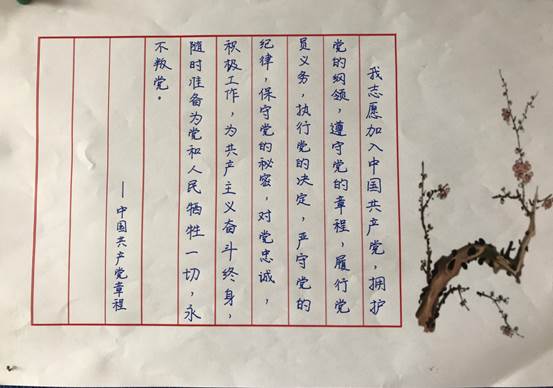 我志愿加入中国共产党，拥护
党的纲领，遵守党的章程，履行党
员义务，执行党的决定，严守党的
纪律，保守党的秘密，对党忠诚，
积极工作，为共产主义奋斗终身，
随时准备为党和人民牺牲一切，永
不叛党。
—中国共产党章程